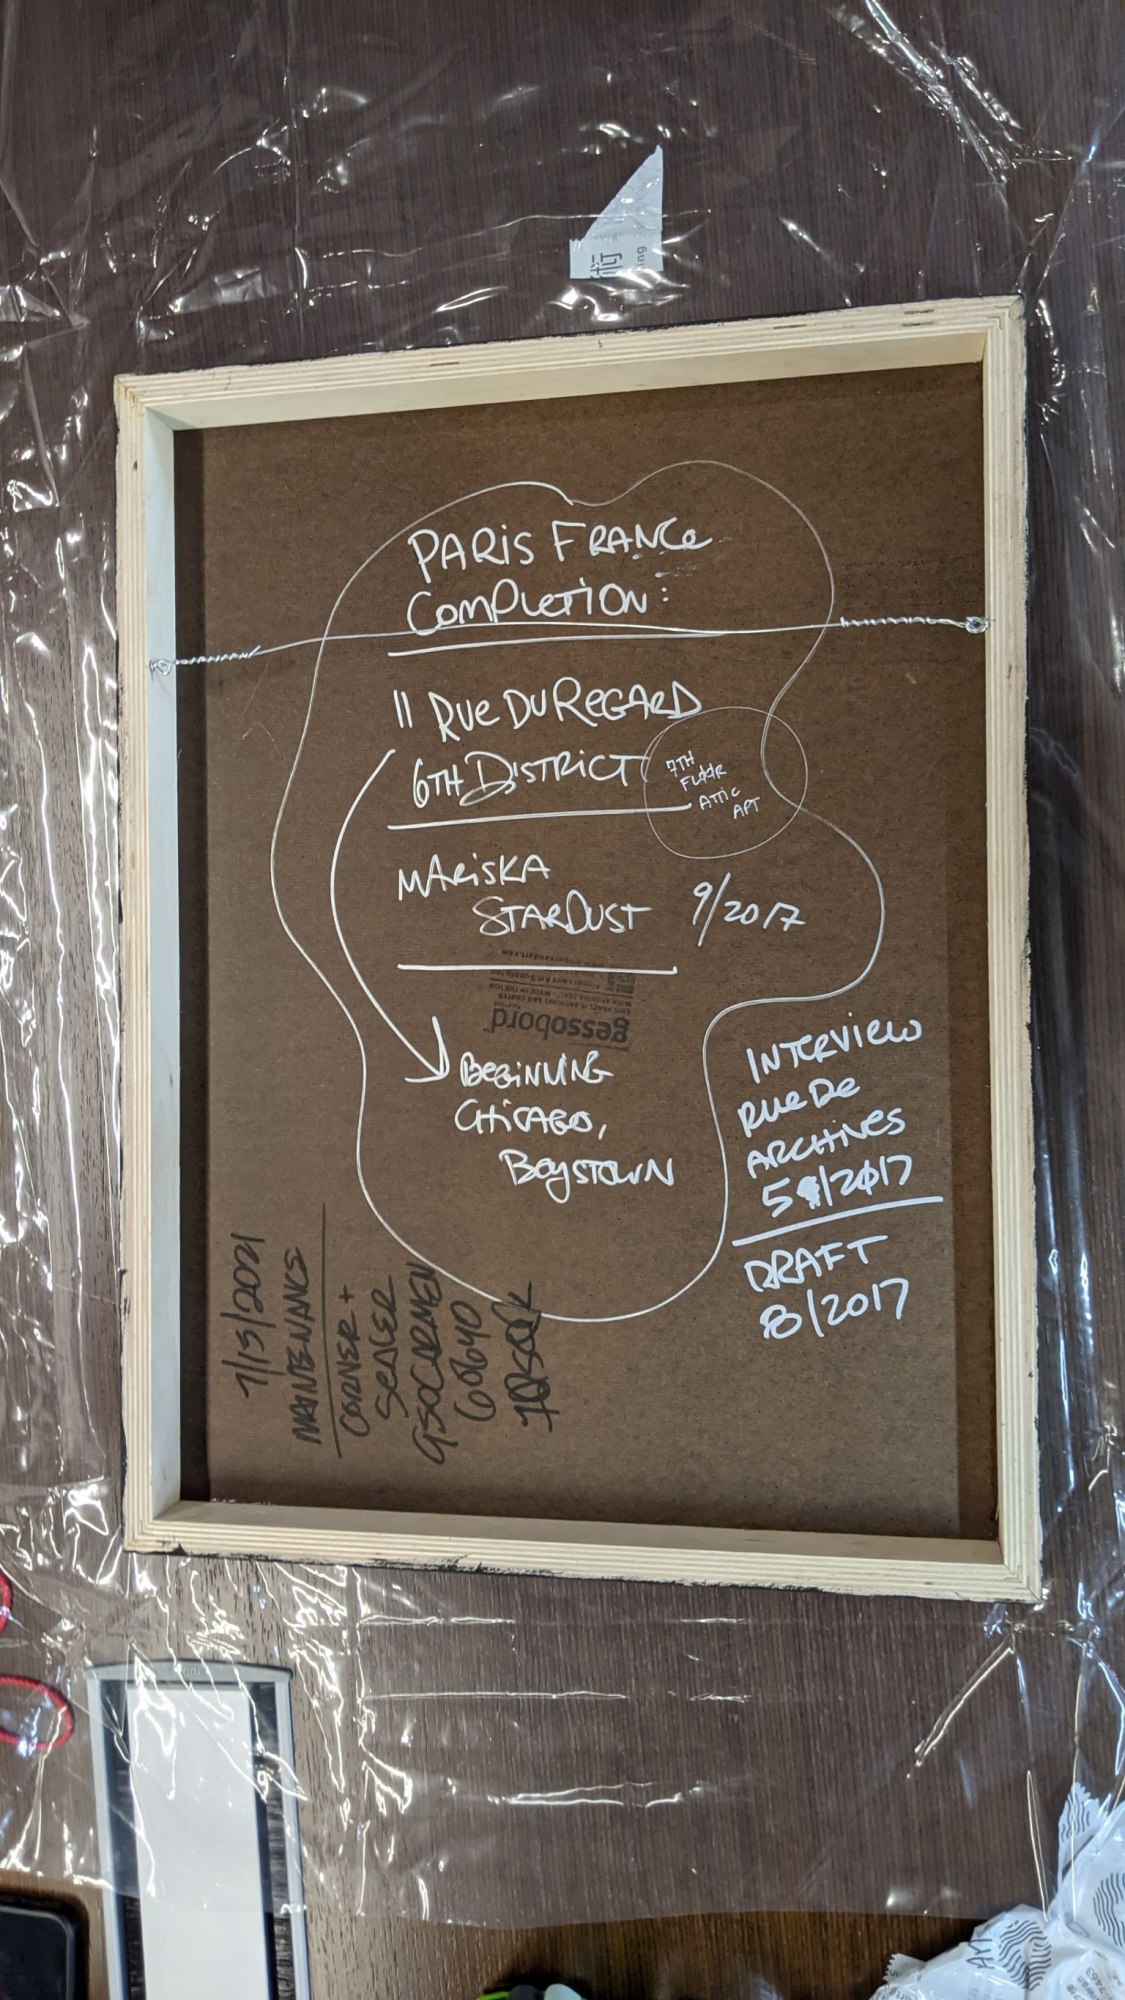 PARIS FRANCE
COMPLETION:
11 RUE DU REGARD
6TH DISTRICT
7TH
FLOOR
ATTIC
APT
MARISKA
STARDUST 9/2017
gessobord
BEGINNING
CHICAGO,
BOYSTOWN
INTERVIEW
RUE DE
ARCHIVES
5/2017
DRAFT
8/2017
7/15/2021
MAINTENANCE
CORNER +
SEALER
950 CARMEN
60640